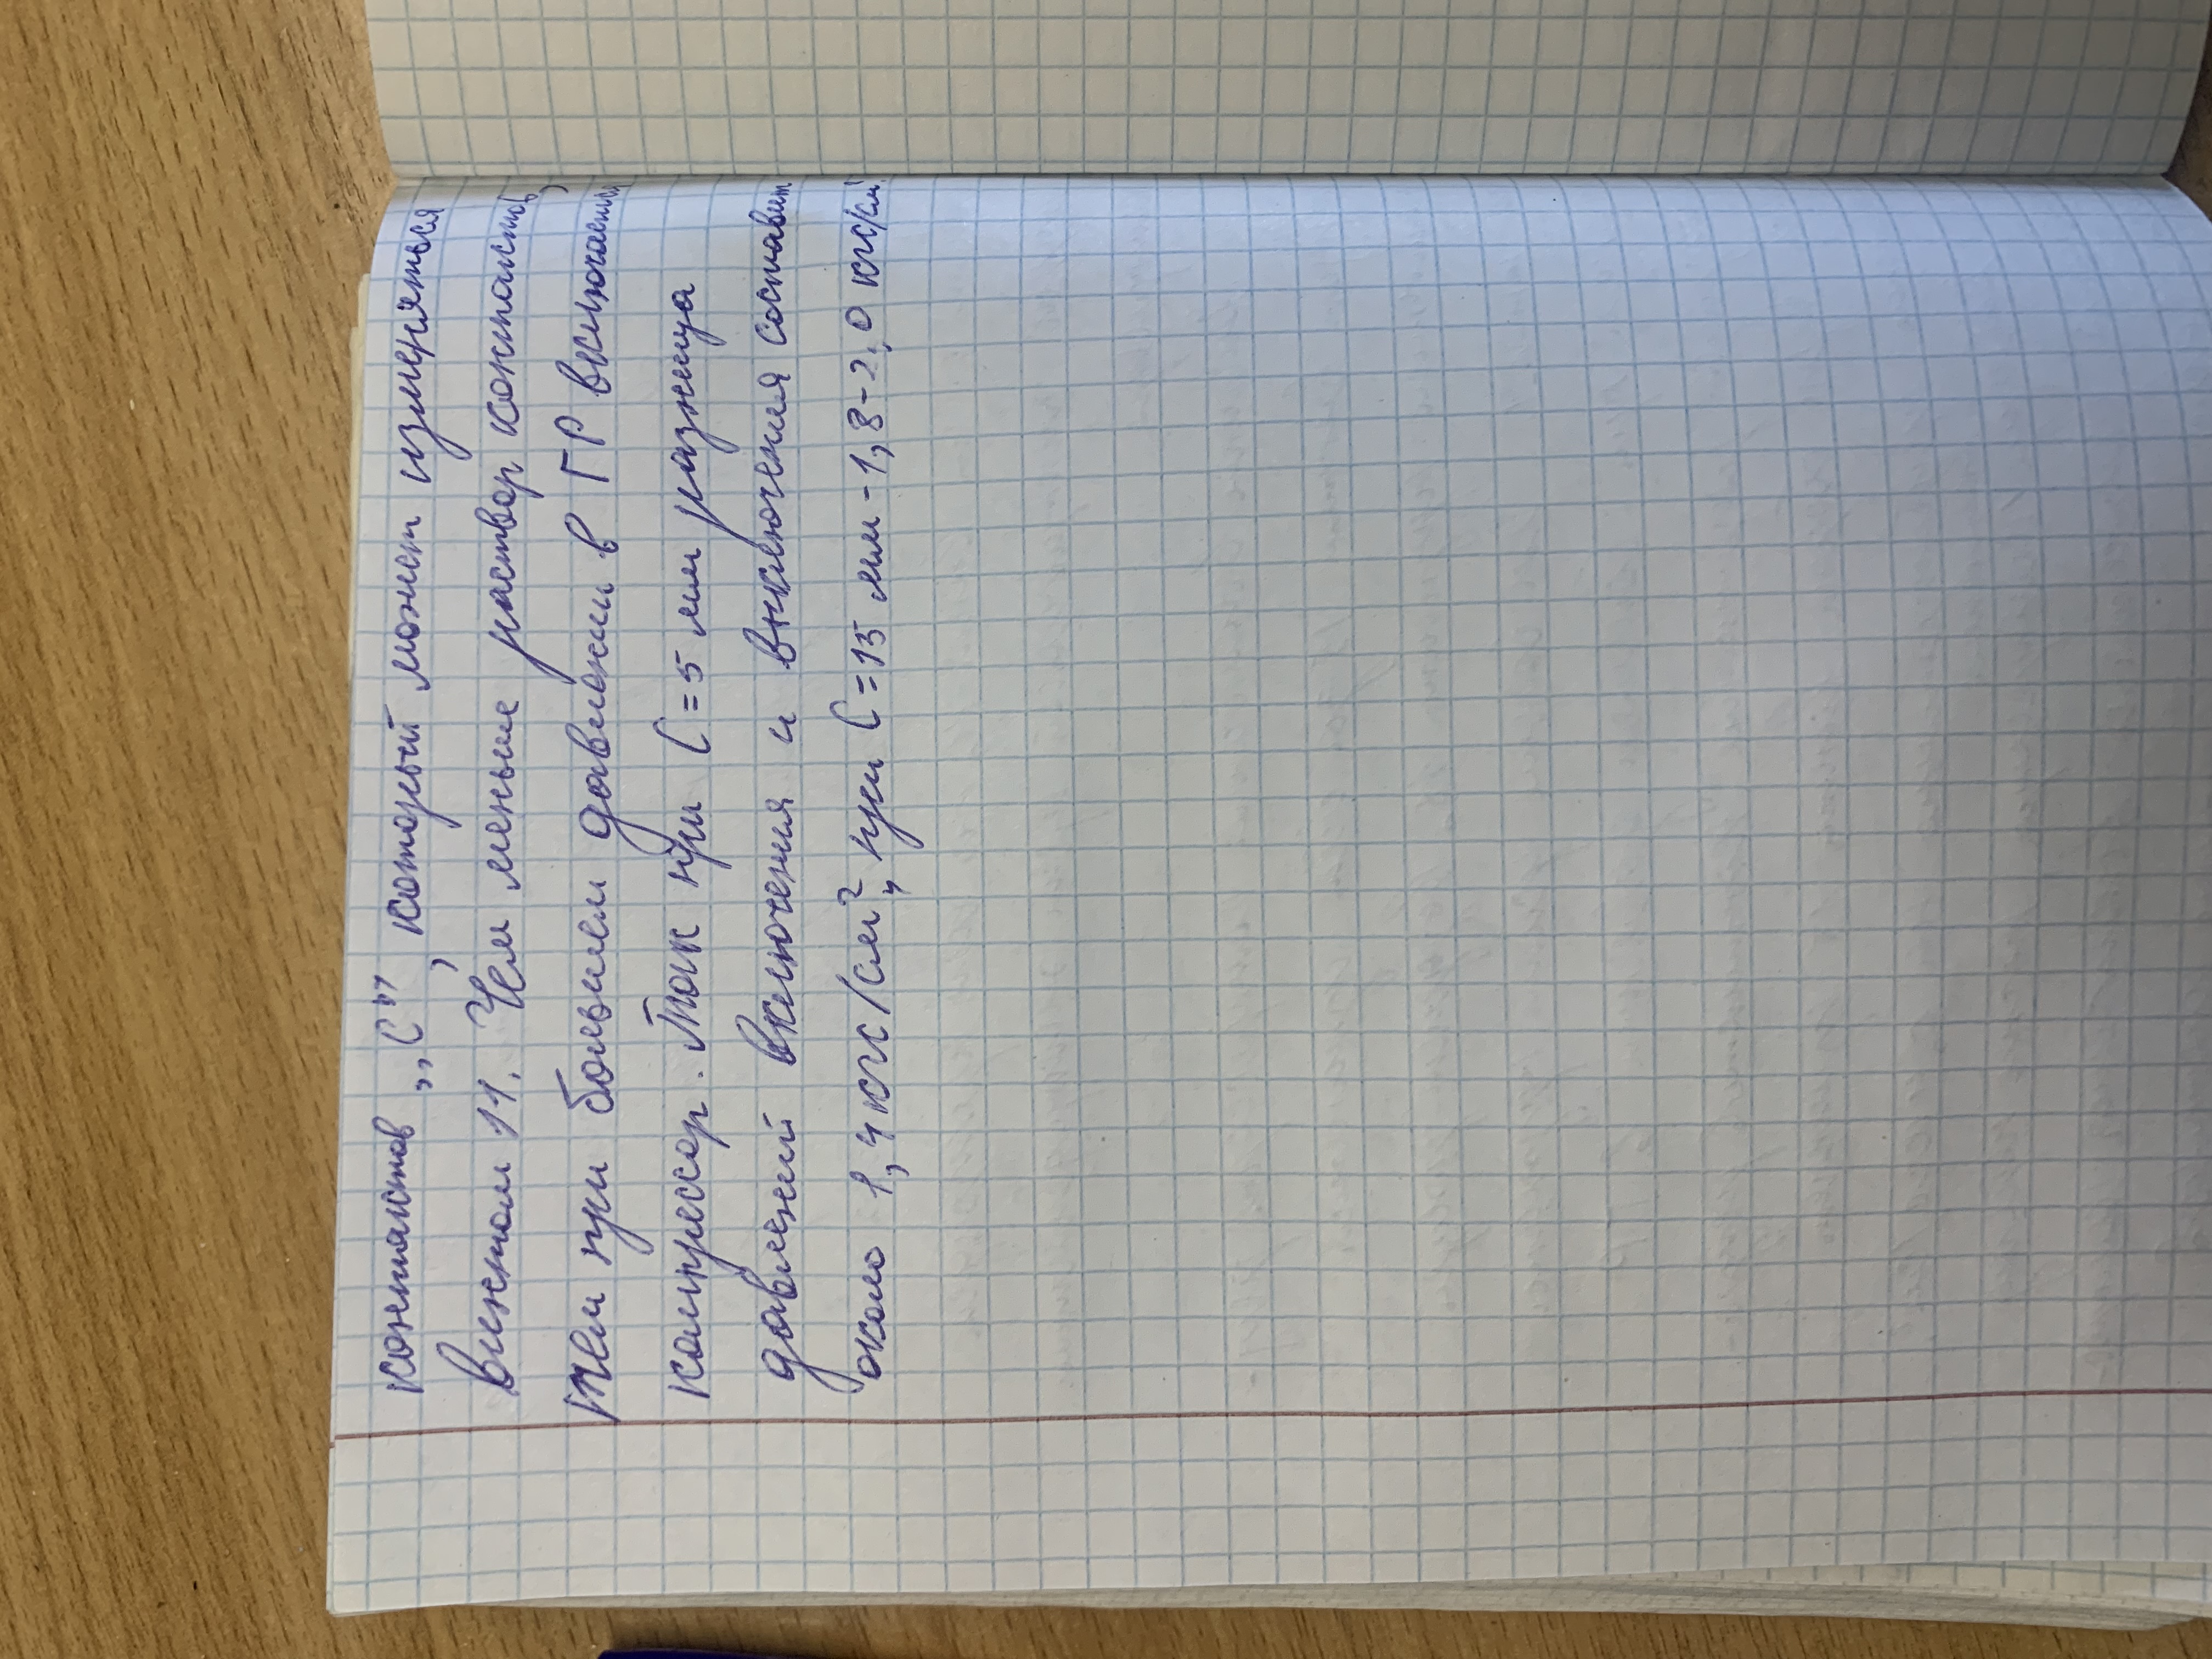 контактов „С", который может изменяться
винтом 11. Чем меньше раствор контактов,
тем при большем давлении в ГР включается
компрессор. Так при С=5 мм разница
давлений включения и вкключения составит
около 1,4 кгс/см², при С=15 мм - 1,8-2,0 кгс/см²